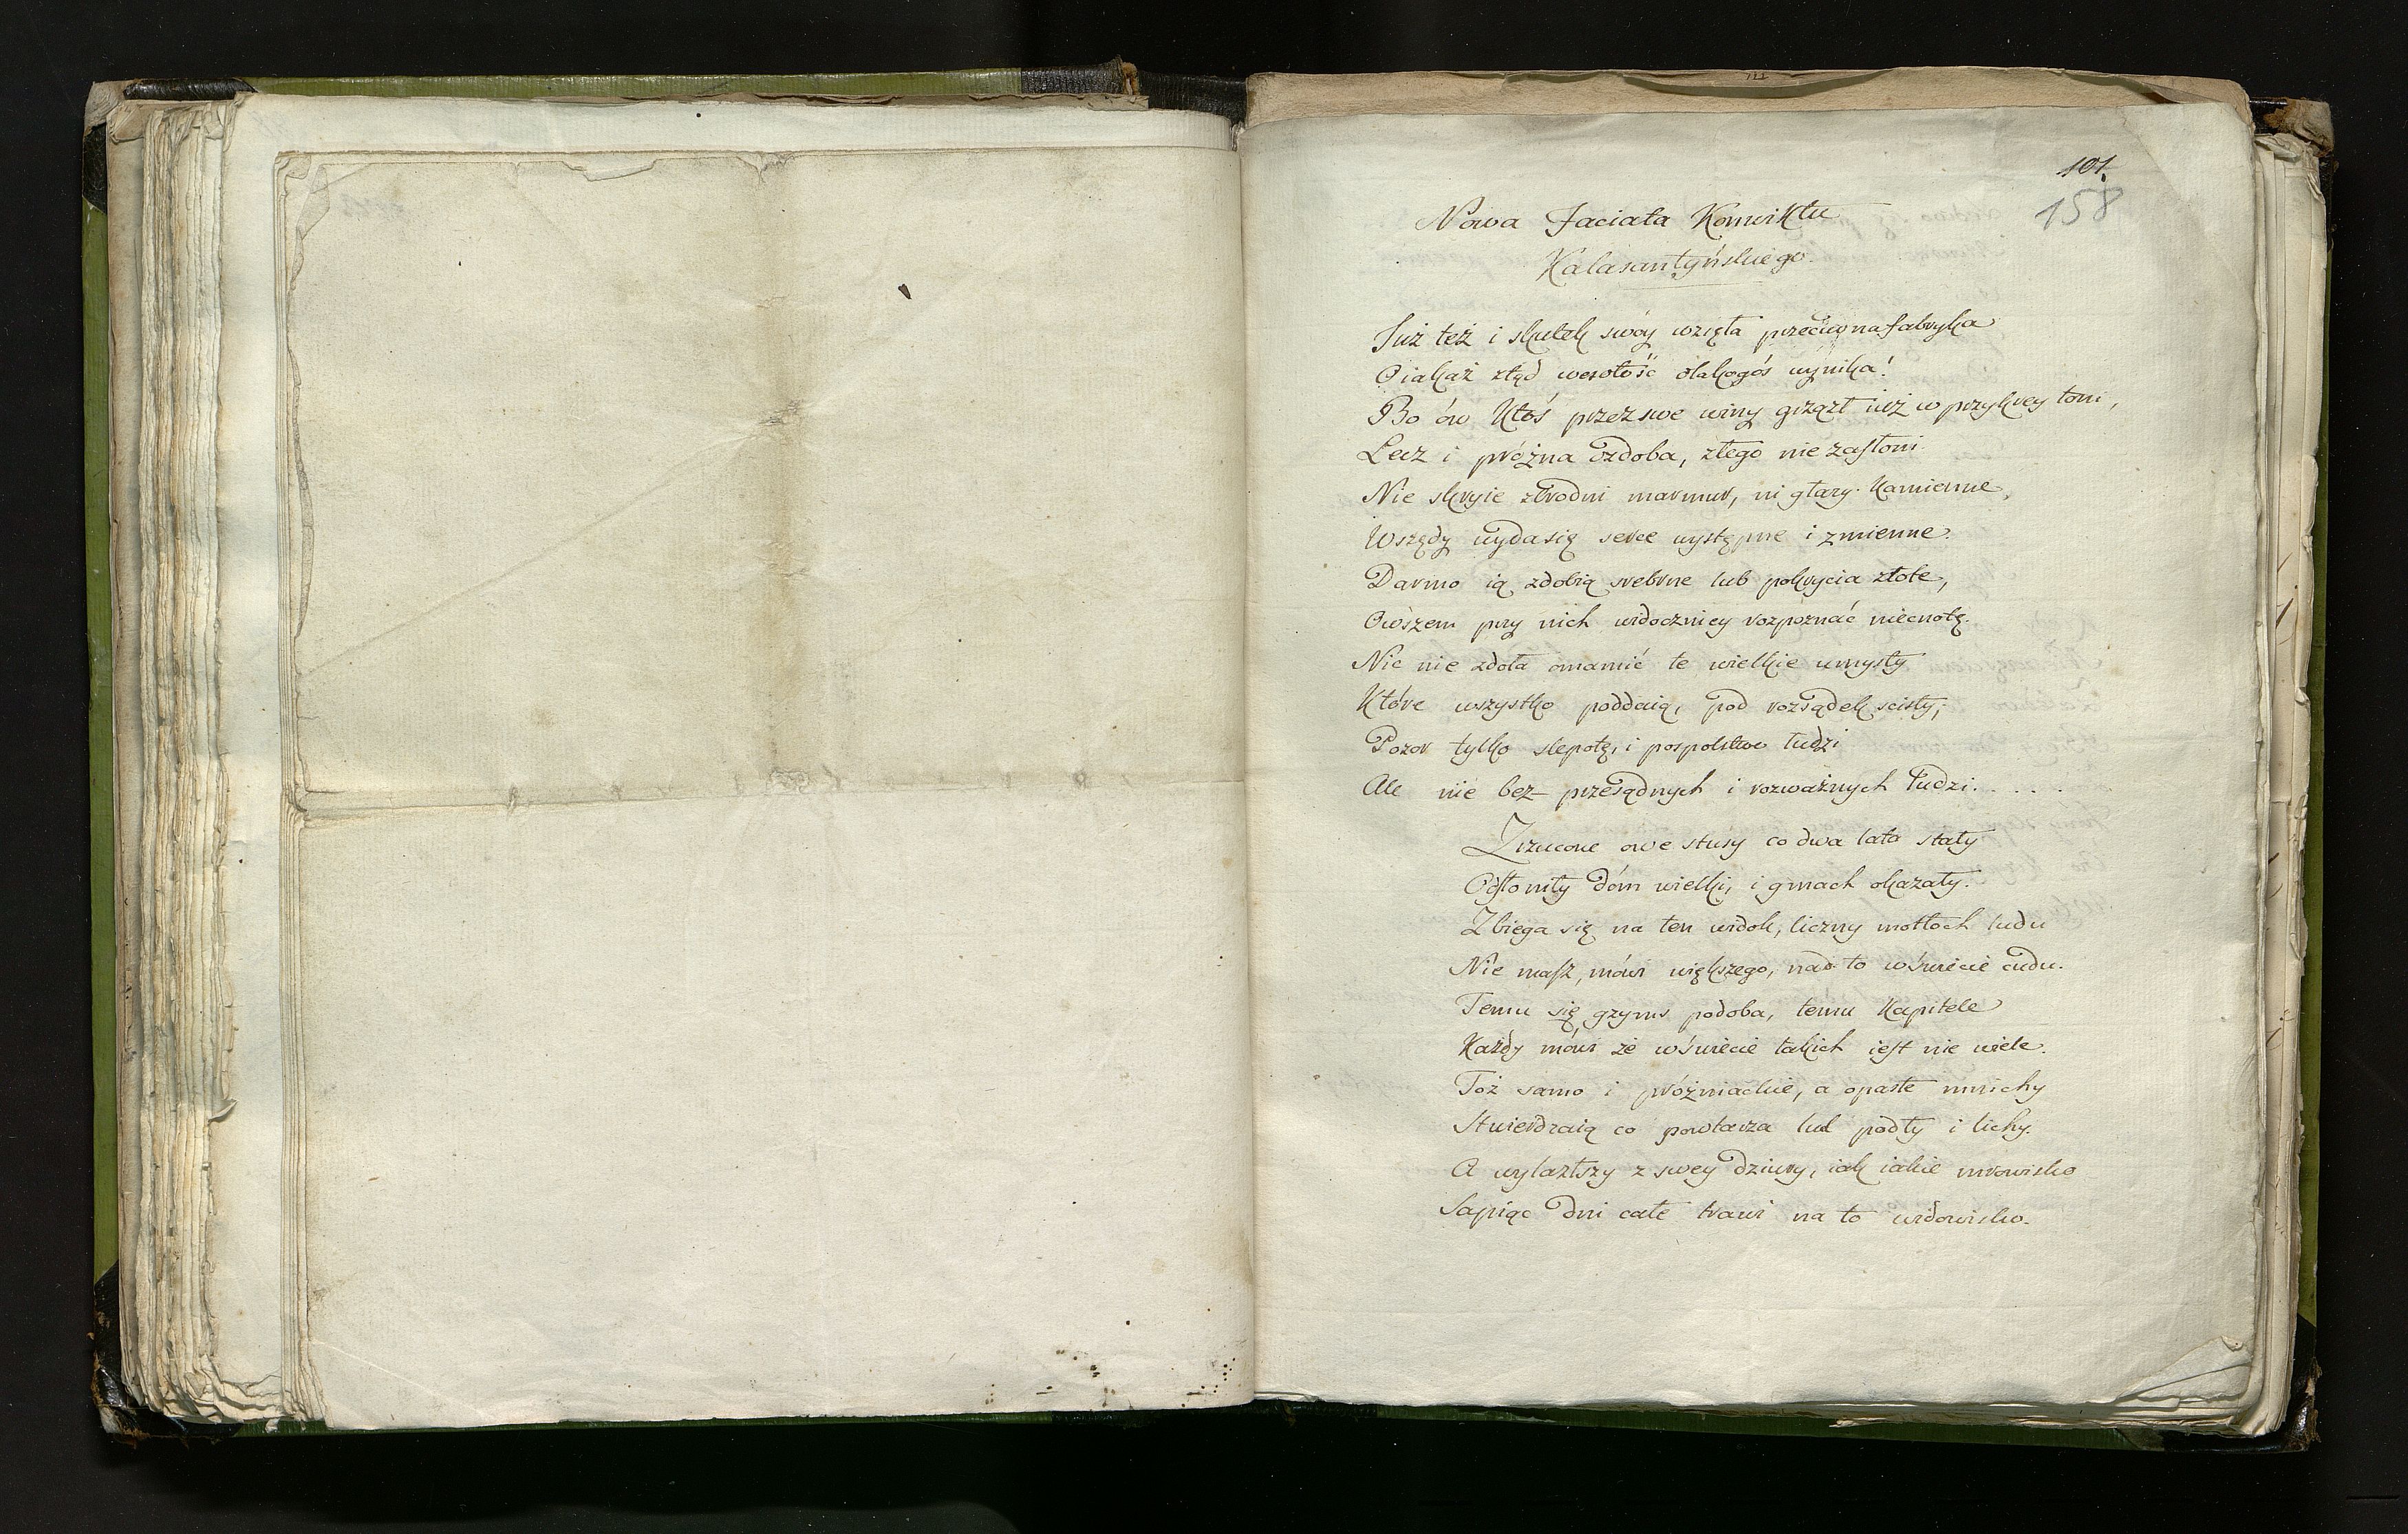 101.
158
Nowa Faciata Konwiktu
Kalasantyńskiego.
Już też i skutek swóy wzięła przeciwna fabryka
O iakaż ztąd wesołość dla kogós wynika!
Bo ów Ktoś przez swe winy grzązł iuż w przykrey toni,
Lecz i próżna ozdoba, złego nie zasłoni.
Nie skryie zbrodni marmur, ni głazy kamienne,
Wszędy wyda się serce występne i zmienne.
Darmo ią zdobią srebrne lub pokrycia złote,
Owszem przy nich widoczniey rozpoznać niecnotę.
Nic nie zdoła omamić te wielkie umysły
Które wszystko poddaią, pod rozsądek scisły;
Pozor tylko slepotę, i pospolstwo łudzi
Ale nie bez-przesądnych i rozważnych ludzi.....
Zrzucone owe stusy co dwa lata stały
Odsłoniły dóm wielki, i gmach okazały.
Zbiega się na ten widok, liczny motłoch ludu
Nie masz, mówi większego, nad to w świecie cudu.
Temu się gzyms podoba, temu Kapitele
Każdy mówi że w świecie takich iest nie wiele.
Toż samo i próżniackie, a opasłe mnichy
Stwierdzaią co powtarza lud podły i lichy.
A wylazłszy z swey dziury, iak iakie mrowisko
Sapiąc dni całe trawi na to widowisko.